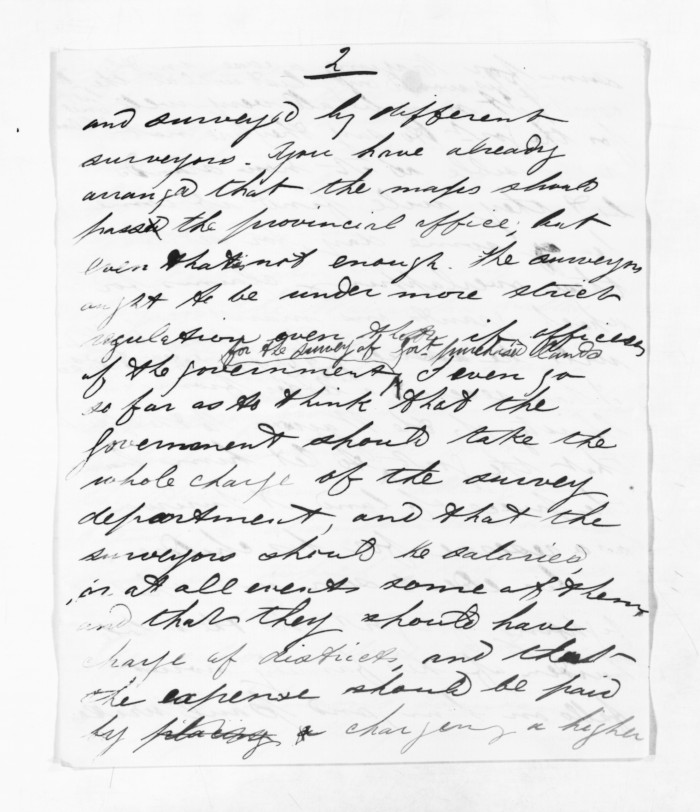 2
and surveyed by different
surveyors. You have already
arrangd that the maps should
pass the provincial office, but
even that is not enough. The surveyors
ought to be under more strict
regulation even, if offices
for the survey of Govt. purchased lands
of the government, I even go
so far as to think that the
Government should take the
whole charge of the survey
department, and that the
surveyors should be salaried,
or at all events some of them
and that they should have
charge of districts, and that
the expense should be paid
by placing a charging a higher